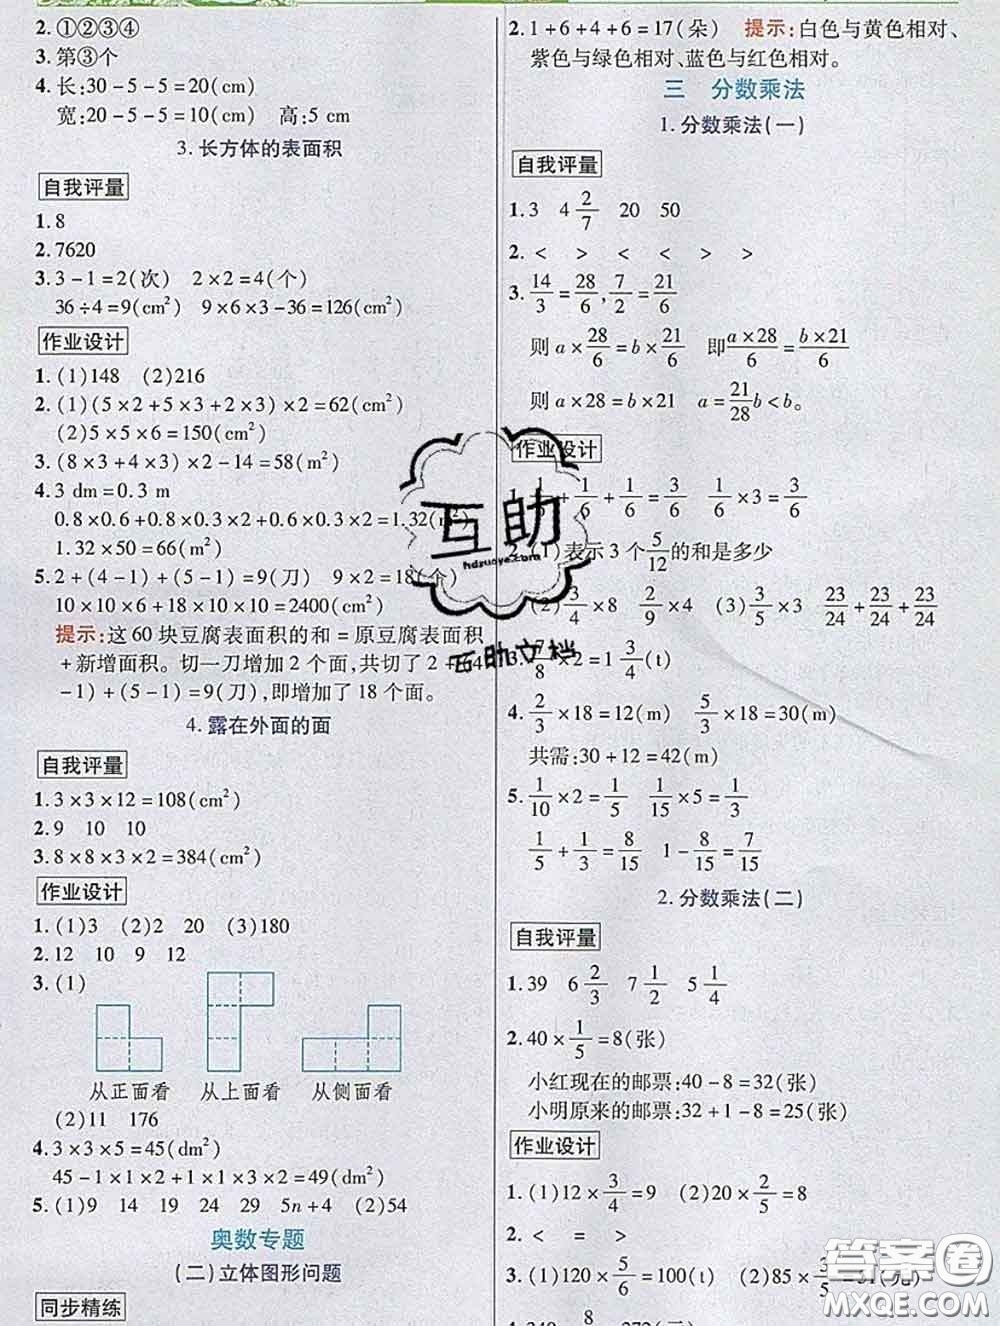 2. ①②③④
3. 第③个
4. 长:30-5-5=20(cm)
宽:20-5-5=10(cm) 高:5 cm
3. 长方体的表面积
自我评量
1. 8
2. 7620
3. 3-1=2(次) 2×2=4(个)
36÷4=9(cm²) 9×6×3-36=126(cm²)
作业设计
1. (1)148 (2)216
2. (1)(5×2+5×3+2×3)×2=62(cm²)
(2)5×5×6=150(cm²)
3. (8×3+4×3)×2-14=58(m²)
4. 3 dm=0.3 m
0.8×0.6+0.8×0.3×2+0.6×0.3×2=1.32(m²)
1.32×50=66(m²)
5. 2+(4-1)+(5-1)=9(刀) 9×2=18(个)
10×10×6+18×10×10=2400(cm²)
提示:这60块豆腐表面积的和=原豆腐表面积
+新增面积。切一刀增加2个面,共切了2+(4
-1)+(5-1)=9(刀),即增加了18个面。
4. 露在外面的面
自我评量
1. 3×3×12=108(cm²)
2. 9 10 10
3. 8×8×3×2=384(cm²)
作业设计
1. (1)3 (2)2 20 (3)180
2. 12 10 9 12
3. (1)
从正面看 从上面看 从侧面看
(2)11 176
4. 3×3×5=45(dm²)
45-1×1×2+1×1×2+1×1×3=49(dm²)
5. (1)9 14 19 24 29 5n+4 (2)54
奥数专题
(二)立体图形问题
同步精练
2. 1+6+4+6=17(朵) 提示:白色与黄色相对、
紫色与绿色相对、蓝色与红色相对。
三 分数乘法
1. 分数乘法(一)
自我评量
1. 3 4 2/7 20 50
2. < > < < > >
3. 14/3=28/6,7/2=21/6
则a×28/6=b×21/6 即a×28/6=b×21/6
则a×28=b×21 a=21/28b<b。
作业设计
1. 1/6+1/6+1/6=3/6 1/6×3=3/6
2. (1)表示3个5/12的和是多少
(2)3/4×8 2/9×4 (3)3/5×3 23/24+23/24+23/24
3. 7/8×2=1 3/4(t)
4. 2/3×18=12(m) 5/3×18=30(m)
共需:30+12=42(m)
5. 1/10×2=1/5 1/15×5=1/3
1/5+1/3=8/15 1-8/15=7/15
2. 分数乘法(二)
自我评量
1. 39 6 2/3 7 1/2 5 1/4
2. 40×1/5=8(张)
小红现在的邮票:40-8=32(张)
小明原来的邮票:32+1-8=25(张)
作业设计
1. (1)12×3/4=9 (2)20×2/5=8
2. < = >
3. (1)120×5/6=100(t) (2)85×3/5=51(元)
互助
hdzuoye.com
互助文档
答案圈
MXQE.COM